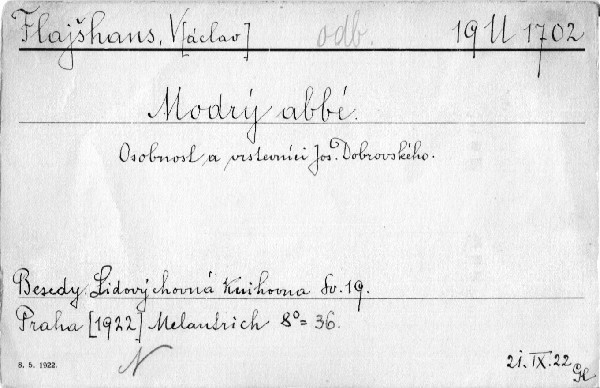 Flajšhans, V[áclav] odb. 19 U 1702
Modrý abbé.
Osobnost a vrstevníci Jos. Dobrovského.
Besedy. Lidovýchovná knihovna Sv. 19.
Praha [1922] Melantrich 8° = 36.
N
8. 5. 1922.
21. IX. 22